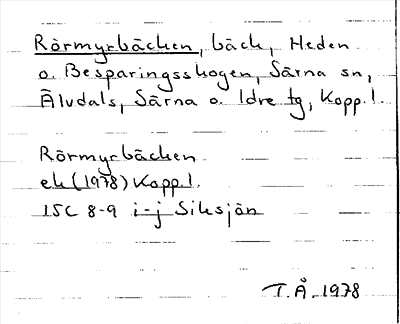 Rörmyrbäcken, bäck, Heden
o. Besparingsskogen, Särna sn,
Älvdals, Särna o. Idre tg, Kopp.l.
Rörmyrbäcken
ek (1978) Kopp.l.
15C 8-9 i-j Siksjön
T.Å. 1978